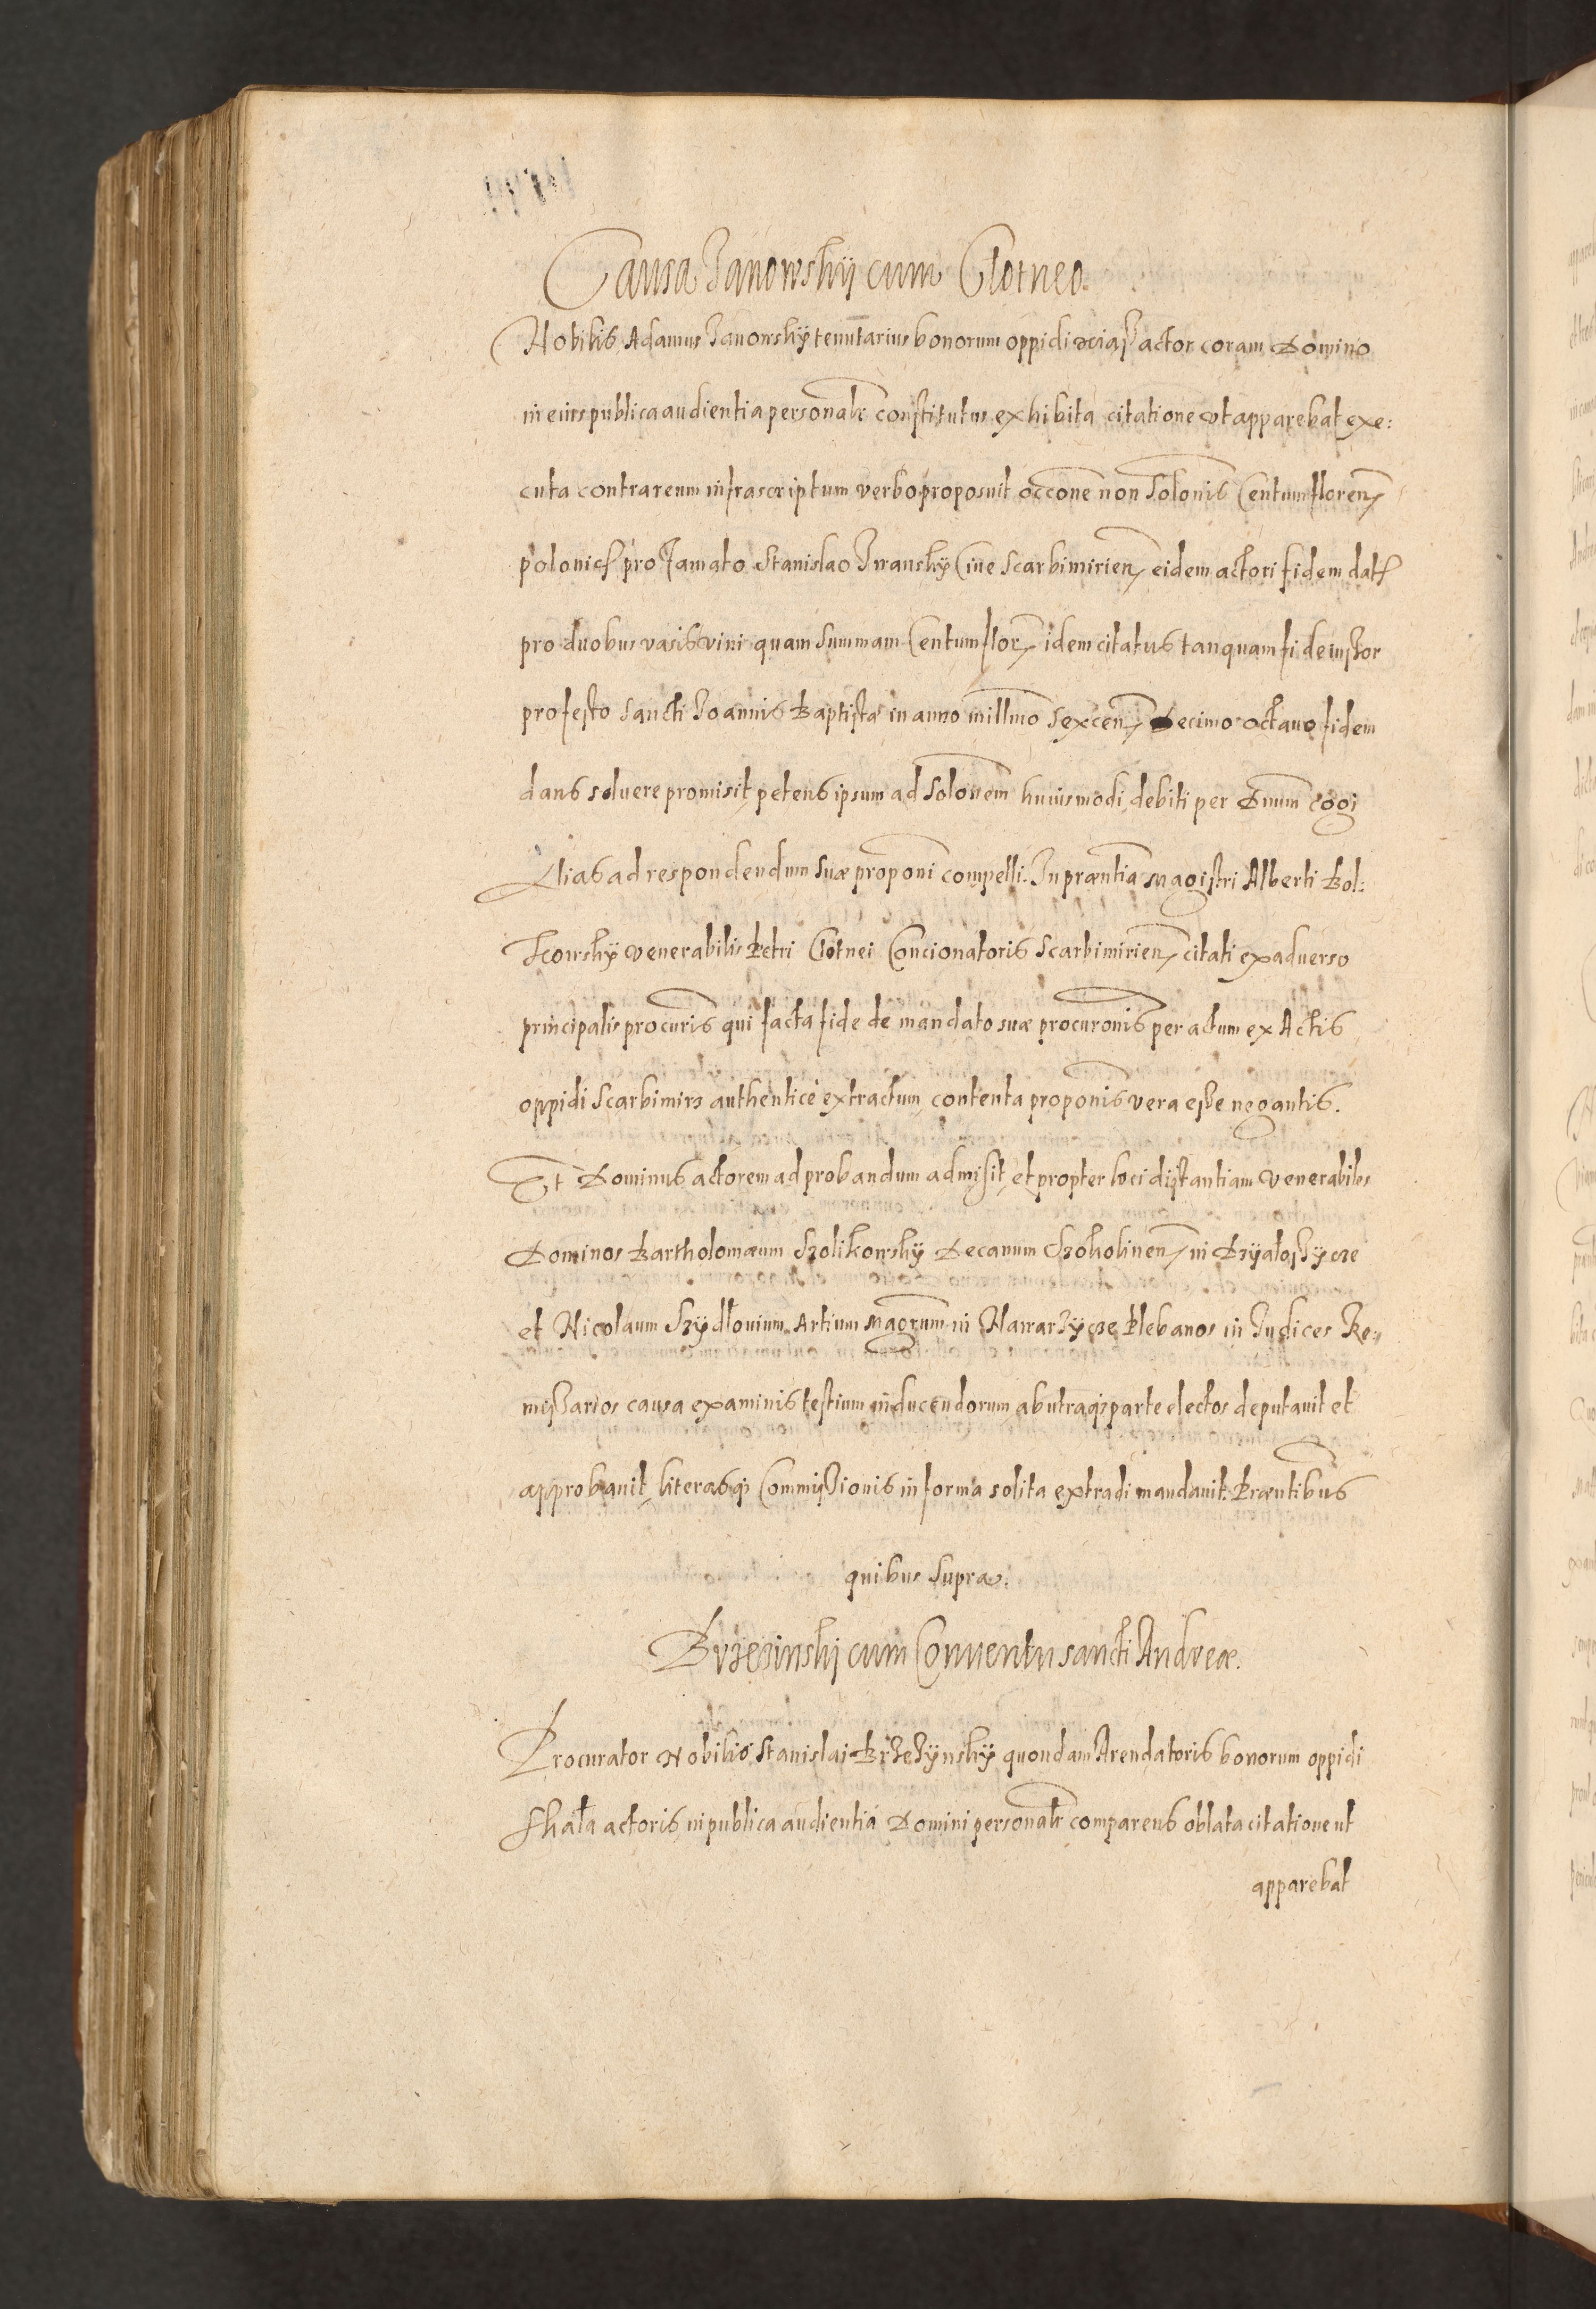 Causa Janowskij cum Clotneo.
Nobilis Adamus Janowskÿ tenutarius bonorum oppidi actor coram Domino
in eius publica audientia personalr constitutus exhibita citatione vt apparebat exe:
cuta contra reum infrascriptum verbo proposuit occone non solonis Centum floren
polonicł pro famato Stanislao Iwanskÿ Ciue Scarbimirien eidem actori fidem datł
pro duobus vasis vini quam summam Centum flor idem citatus tanquam fideiussor
pro festo Sancti Joannis Baptistæ in anno millmo sexcen Decimo octauo fidem
dans soluere promisit petens ipsum ad solonem huiusmodi debiti per Dnum cogi
Alias ad respondendum suæ proponi compelli. In præntia Magistri Alberti Bol:
kowskÿ venerabilis Petri Clotnei Concionatoris Scarbimirien citati ex aduerso
principalis procuris qui facta fide de mandato suæ procuronis per actum ex Actis
oppidi Scarbimirs authenticè extractum contenta proponis vera esse negantis.
Et Dominus actorem ad probandum admisit et propter loci distantiam venerabiles
Dominos Bartholomæum Szolikowskÿ Decanum Skolinen in Dzÿałoszÿcze
et Nicolaum Szÿdłouium Artium Magrum in Nawarzÿcze Plebanos in Judices Re:
missarios causa examinis testium inducendorum ab utraqs parte electos deputauit et
approbauit literasqs Commissionis in forma solita extradi mandauit. Præntibus
quibus supra.
Brzezinskij cum Conuentu sancti Andreæ.
Procurator Nobilis Stanislai Brzezÿnskÿ quondam Arendatoris bonorum oppidi
Skała actoris in publica audientia Domini personalr comparens oblata citatione ut
apparebat